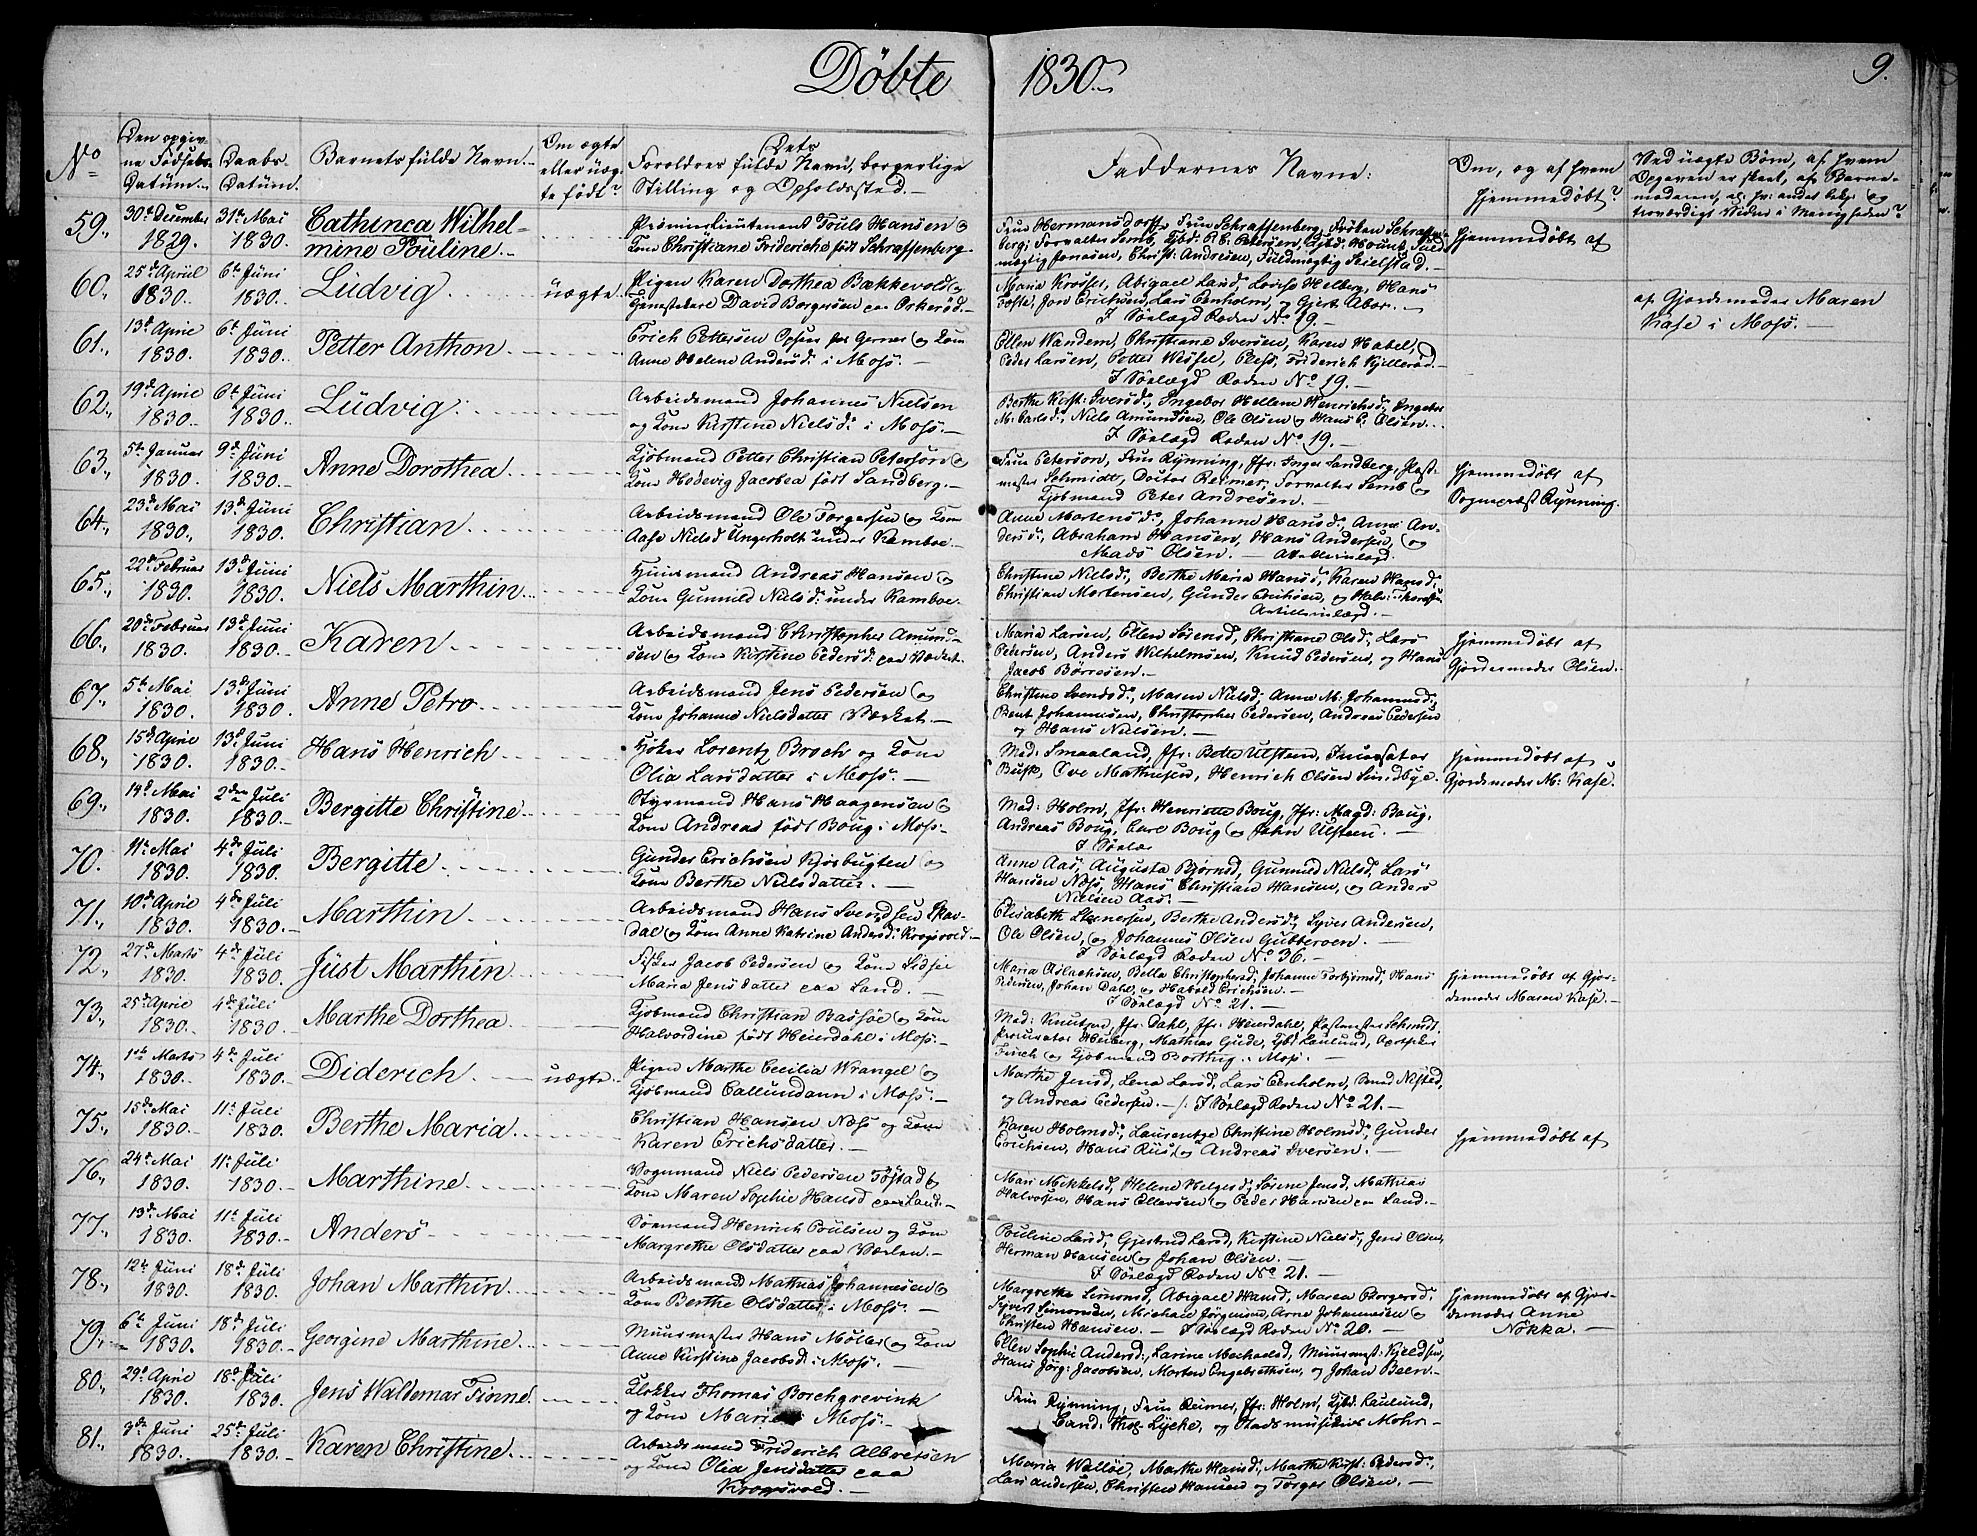 Döbte 1830. 9.
No
Den opgivne Födsels Datum.
Daabs Datum.
Barnets fulde Navn.
Om ægte eller uægte födt?
Dets Foreldres fulde Navn, borgerlige Stilling og Opholdssted.
Faddernes Navne:
Om, og af hvem hjemmedöbt?
Ved uægte Börn, af hvem Opgaven er skeet, af Barnemoderen, el: hv: andet bekj: og troværdigt Vidne i Menigheden?
59., 30te December 1829. 31te Mai 1830. Cathinca Wilhelmine Pouline.
Premierlieutenant Pouls Hansen og
Kone Christiane Friderichs födt Schraffenberg.
hjemmedöbt af
60., 25de Apriil 1830. 6te Juni 1830. Ludvig. uægte.
Pigen Karen Dorthea Bakkevold og
David Borgersen paa Orkeröd.
Maria Krosser, Abigael Land, Lovise Helberg, Hans
Tofte, Jon Erichsen, Lars Eenholm, og Gjert Aboe.
I Sölægd Roden No 19.
af Gjordemoder Maren
Kase i Moss.
61., 13de April 1830. 6te Juni 1830. Petter Anthon.
Erich Pettersen og Kone
Anne Helene Andersd: i Moss.
Ellen Wandem, Christiane Iversen, Karen Habel,
Peder Larsen, Petter Wessel, Friderich Kjilleröd.
I Sölægd Roden No 19.
62., 19de April 1830. 6te Juni 1830. Ludvig.
Arbeidsmand Johannes Nielsen
og Kone Kirstine Nielsd: i Moss.
Berthe Kirst: Iversd:, Ingebor Hellene Henrichsd:, Ingebor
M: Carlsd:, Niels Amundsen, Ole Olsen og Hans C: Olsen.
I Sölægd Roden No 19.
63., 5te Januar 1830. 9de Juni 1830. Anne Dorothea
Kjöbmand Petter Christian Peterson og
Kone Hedevig Jacobea födt Sandberg.
Frue Peterson, Frue Rynning, Jfr: Inger Sandberg, Postmester
Schmidt, Doctor Reimer, Forvalter Semb og
Kjöbmand Peter Andresen.
hjemmedöbt af
Sogneprest Rynning.
64., 23de Mai 1830. 13de Juni 1830. Christian
Arbeidsmand Ole Torgersen og Kone
Aase Nielsd Ungerholt under Kamboe.
Anne Mortensd:, Johanne Hansd:, Anne Andersd:,
Abraham Hansen, Hans Andersen, og
Mads Olsen.
65., 22de Februar 1830. 13de Juni 1830. Niels Marthin.
Huusmand Andreas Hansen og
Kone Gunnild Nielsd: under Kamboe.
Christine Nielsd:, Berthe Maria Hansd:, Karen Hansd:,
Christian Mortensen, Gunder Erichsen, og Halv:
Artillerielægd.
66., 20de Februar 1830. 13de Juni 1830. Karen
Arbeidsmand Christopher Amundsen
og Kone Kirstine Pedersd: paa Værket.
Maria Larsen, Ellen Sörensd, Christiane Olsd:, Lars
Petersen, Anders Wilhelmsen, Knud Pedersen, og Hans
Jacob Börresen.
hjemmedöbt af
Gjordemoder Olsen.
67., 5te Mai 1830. 13de Juni 1830. Anne Petra
Arbeidsmand Jens Pedersen og
Kone Johanne Nielsdatter Værket.
Christine Svendsd:, Maren Nielsd:, Anne M: Johannesd:,
Bent Johannesen, Christopher Pedersen, Andreas Pedersen
og Hans Nielsen.
68., 15de April 1830. 13de Juni 1830. Hans Henrich
Höker Lorentz Broch og Kone
Olia Larsdatter i Moss.
Mad: Smaaland, Jfr: Bette Ulsteen, Procurator
Busk, Ove Mathiesen, Henrich Olsen Sundbye.
hjemmedöbt af
Gjordemoder M: Kase.
69., 14de Mai 1830. 2den Juli 1830. Bergitte Christine
Styrmand Hans Haagensen og
Kone Andrea födt Boug i Moss.
Mad: Holm, Jfr: Henriette Boug, Jfr: Magd: Boug,
Andreas Boug, Carl Boug og John Ulsteen.
70. 11te Mai 1830. 4de Juli 1830. Bergitte
Gunder Erichsen Kjosbugten og
Kone Berthe Nielsdatter.
Anne Aas, Augusta Björnsd, Gunnild Nielsd, Lars
Hansen Næss, Hans Christian Hansen, og Anders
Nielsen Aas.
71., 10de April 1830. 4de Juli 1830. Marthin
Arbeidsmand Hans Svendsen Skavdal
og Kone Anne Katrine Andersd: Krogsvold.
Elisabeth Steenersen, Berthe Andersd:, Syver Andersen,
Ole Olsen, og Johannes Olsen Gubberoen.
I Sölægd Roden No 36.
72., 27de Marts 1830. 4de Juli 1830. Just Marthin
Fisker Jacob Pedersen og Kone
Maria Jensdatter paa Land.
Maria Aslachsen, Bella Christophersd, Johanne Torbjörnsd, Hans
Pedersen, Johan Dahl, og Harald Erichsen.
I Sölægd No 21.
hjemmedöbt af Gjordemoder
Maren Kase.
73., 25de April 1830. 4de Juli 1830. Marthe Dorthea.
Kjöbmand Christian Bassöe og Kone
Halvordine födt Heierdahl i Moss.
Mad: Knutzen, Jfr: Dahl, Jfr: Heierdahl, Postmester Schmidt,
Procurator Heiberg, Mathias Gude, Kjbd Laulund,
Finch og Kjöbmand i Moss.
74., 1ste Marts 1830. 4de Juli 1830. Diderich. uægte.
Pigen Marthe Cecilia Wrangel og
Kjöbmand Callundann i Moss.
Marthe Jensd, Lena Larsd, Lars Eenholm,
og Andreas Pedersen. I Sölægd Roden No 21.
75., 15de Mai 1830. 11te Juli 1830. Berthe Maria.
Christian Hansen Næss og Kone
Karen Erichsdatter.
Karen Holmsd:, Laurentze Christine Holmsd:, Gunder
Erichsen, Hans Riis, og Andreas Iversen.
hjemmedöbt af
76., 24de Mai 1830. 11te Juli 1830. Marthine.
Vognmand Niels Pedersen og
Kone Maren Sophie Hansd paa Land.
Mari Mikkelsd, Helene Helgesd:, Sörene Jensd, Mathias
Halvorsen, Hans Ellevsen og Peder Hansen paa Land.
77., 13de Mai 1830. 11te Juli 1830. Anders
Sömand Henrich Poulsen og Kone
Margrethe Olsdatter paa Værlen.
Pauline Larsd, Gjertrud Larsd, Kirstine Nielsd:, Jens Olsen,
Herman Hansen og Johan Olsen.
I Sölægd Roden No 21.
78., 12te Juni 1830. 18de Juli 1830. Johan Marthin.
Arbeidsmand Mathias Johannesen og
Kone Berthe Olsdatter i Moss.
Margrethe Simonsd, Abigael Hansd, Maren Borgersd,
Syvert Simonsen, Michael Jörgensen, Arne Johannesen og
Christen Hansen. I Sölægd Roden No 20.
hjemmedöbt af Gjordemoder
Anne
Nökka.
79., 6te Juni 1830. 18de Juli 1830. Georgine Marthine.
Muurmester Hans Möller og Kone
Anne Kirstine Jacobsd: i Moss.
Ellen Sophie Andersd:, Larine Michaelsd, Muurmest: Kjeldsen,
Hans Jörg: Jacobsen, Morten Engebrethsen, og Johan Been.
80., 29de April 1830. 18de Juli 1830. Jens Waldemar Finne.
Klokker Thomas Borchgrevink
og Kone Marie i Moss.
Frue Rynning, Frue Reimer, Jfr: Holm, Kjbd: Laulund,
Cand: theol Lycke, og Stadsmusikus Mohr.
81., 3de Juni 1830. 25de Juli 1830. Karen Christine.
Arbeidsmand Friderich Albretsen
og Kone Olia Jensdatter paa
Krogsvold.
Maria Walløe, Marthe Hansd:, Marthe Kirst: Pedersd:,
Lars Andersen, Christen Hansen og Torger Olsen.